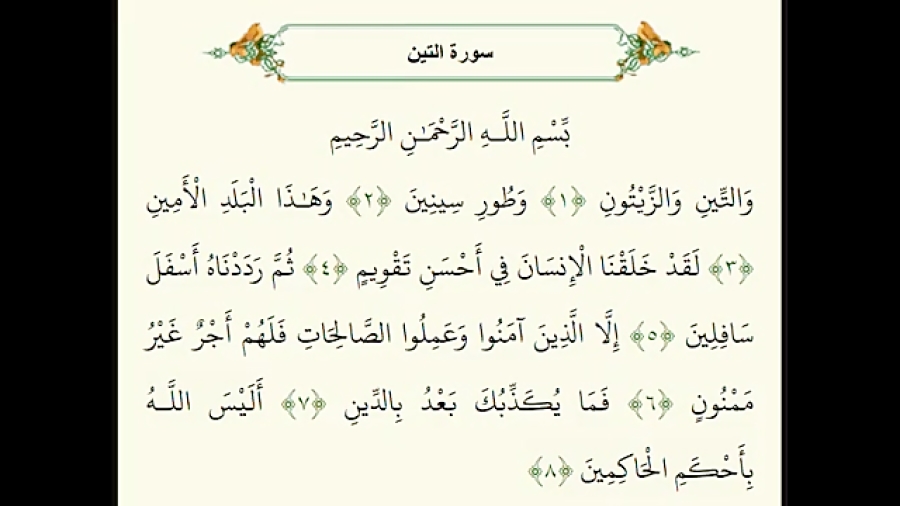 سورة التين
بِّسْمِ اللَّـهِ الرَّحْمَـٰنِ الرَّحِيمِ
وَالتِّينِ وَالزَّيْتُونِ ﴿١﴾ وَطُورِ سِينِينَ ﴿٢﴾ وَهَـٰذَا الْبَلَدِ الْأَمِينِ
﴿٣﴾ لَقَدْ خَلَقْنَا الْإِنسَانَ فِي أَحْسَنِ تَقْوِيمٍ ﴿٤﴾ ثُمَّ رَدَدْنَاهُ أَسْفَلَ
سَافِلِينَ ﴿٥﴾ إِلَّا الَّذِينَ آمَنُوا وَعَمِلُوا الصَّالِحَاتِ فَلَهُمْ أَجْرٌ غَيْرُ
مَمْنُونٍ ﴿٦﴾ فَمَا يُكَذِّبُكَ بَعْدُ بِالدِّينِ ﴿٧﴾ أَلَيْسَ اللَّـهُ
بِأَحْكَمِ الْحَاكِمِينَ ﴿٨﴾